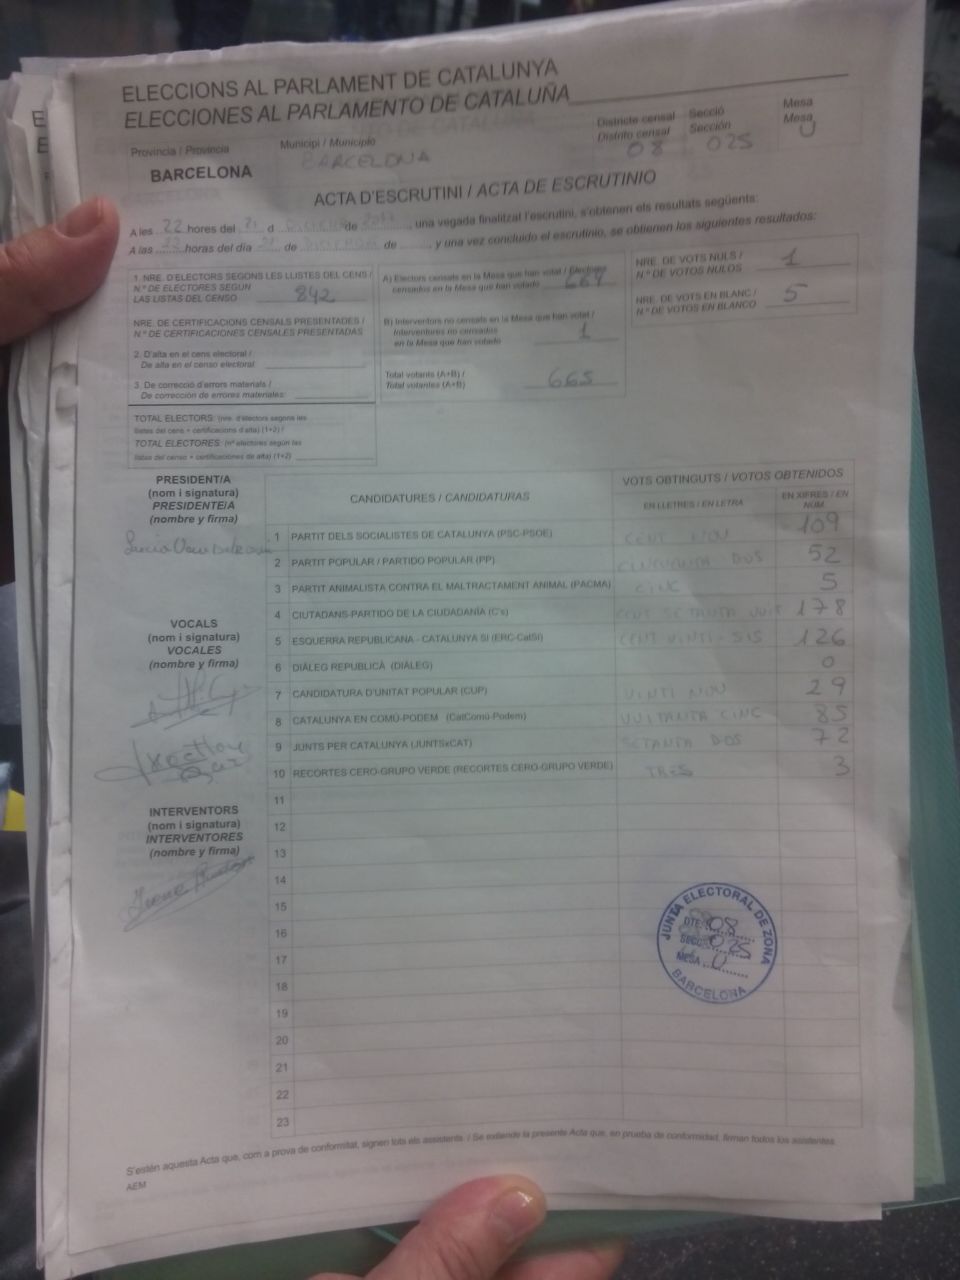 ELECCIONS AL PARLAMENT DE CATALUNYA
ELECCIONES AL PARLAMENTO DE CATALUÑA
Província / Provincia
BARCELONA
Municipi / Municipio
BARCELONA
Districte censal
Distrito censal
08
Secció
Sección
025
Mesa
Mesa
U
ACTA D'ESCRUTINI / ACTA DE ESCRUTINIO
A les 22 hores del 21 d DICIEMBRE de 2017, una vegada finalitzat l'escrutini, s'obtenen els resultats següents:
A las 22 horas del día 21 de DICIEMBRE de, y una vez concluido el escrutinio, se obtienen los siguientes resultados:
1. NRE. D'ELECTORS SEGONS LES LLISTES DEL CENS /
N.º DE ELECTORES SEGÚN
LAS LISTAS DEL CENSO 842
NRE. DE CERTIFICACIONS CENSALS PRESENTADES /
N.º DE CERTIFICACIONES CENSALES PRESENTADAS
2. D'alta en el cens electoral /
De alta en el censo electoral:
3. De correcció d'errors materials /
De corrección de errores materiales:
TOTAL ELECTORS: (nre. d'electors segons les
llistes del cens + certificacions d'alta) (1+2) /
TOTAL ELECTORES: (nº electores según las
listas del censo + certificaciones de alta) (1+2)
A) Electors censats en la Mesa que han votat / Electores
censados en la Mesa que han votado 664
B) Interventors no censats en la Mesa que han votat /
Interventores no censados
en la Mesa que han votado 1
Total votants (A+B) /
Total votantes (A+B) 665
NRE. DE VOTS NULS /
N.º DE VOTOS NULOS 1
NRE. DE VOTS EN BLANC /
N.º DE VOTOS EN BLANCO 5
PRESIDENT/A
(nom i signatura)
PRESIDENTE/A
(nombre y firma)
VOCALS
(nom i signatura)
VOCALES
(nombre y firma)
INTERVENTORS
(nom i signatura)
INTERVENTORES
(nombre y firma)
CANDIDATURES / CANDIDATURAS
VOTS OBTINGUTS / VOTOS OBTENIDOS
EN LLETRES / EN LETRA
EN XIFRES / EN NÚM.
1 PARTIT DELS SOCIALISTES DE CATALUNYA (PSC-PSOE) CENT NOU 109
2 PARTIT POPULAR / PARTIDO POPULAR (PP) CINQUANTA DOS 52
3 PARTIT ANIMALISTA CONTRA EL MALTRACTAMENT ANIMAL (PACMA) CINC 5
4 CIUTADANS-PARTIDO DE LA CIUDADANÍA (C's) CENT SETANTA VUIT 178
5 ESQUERRA REPUBLICANA - CATALUNYA SÍ (ERC-CatSÍ) CENT VINTI-SIS 126
6 DIÀLEG REPUBLICÀ (DIÀLEG) 0
7 CANDIDATURA D'UNITAT POPULAR (CUP) VINTI NOU 29
8 CATALUNYA EN COMÚ-PODEM (CatComú-Podem) VUITANTA CINC 85
9 JUNTS PER CATALUNYA (JUNTSxCAT) SETANTA DOS 72
10 RECORTES CERO-GRUPO VERDE (RECORTES CERO-GRUPO VERDE) TRES 3
11
12
13
14
15
16
17
18
19
20
21
22
23
JUNTA ELECTORAL DE ZONA
DTE. 08
SECC. 025
MESA U
BARCELONA
S'estén aquesta Acta que, com a prova de conformitat, signen tots els assistents. / Se extiende la presente Acta que, en prueba de conformidad, firman todos los asistentes.
AEM